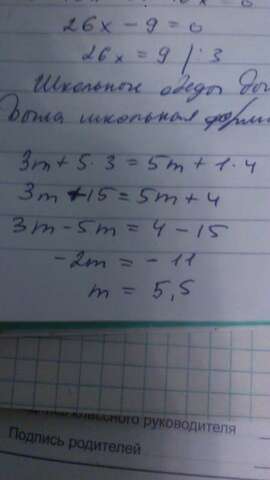 26x - 9 = 0
26x = 9 | : 3
Школьные обеды
была школьная
3m + 5·3 = 5m + 1·4
3m + 15 = 5m + 4
3m - 5m = 4 - 15
-2m = -11
m = 5,5
классного руководителя
Подпись родителей